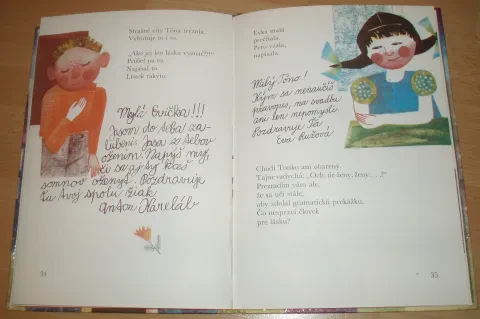 Strašné city Tóna trýznia.
Vyhútuje to i to.
„Ako jej len lásku vyznačím?“
Prišiel na to.
Napísal to.
Lístok takýto:
Mylá Evička!!!
Jasom do teba za-
lúbení. Jasa ztebov
ožením. Napíš mi,
či sa aj ty kceš
somnov oženyť. Pozdravuje
ťa tvoj spolu žiak
Anton Karelák
34
Evka smutá
prečítala.
Pero vzala,
napísala:
Milý Tóno!
Kým sa nenaučíš
pravopis, na svadbu
ani len nepomysli.
Pozdravuje Ťa
Eva Ružová
Chudí Tonko ani obarený.
Tajne vzdychá: „Och, tie ženy, ženy . . .!“
Prezradím vám ale,
že sa učí stále,
aby zdolal gramatickú prekážku.
Čo neupraví človek
pre lásku?
35